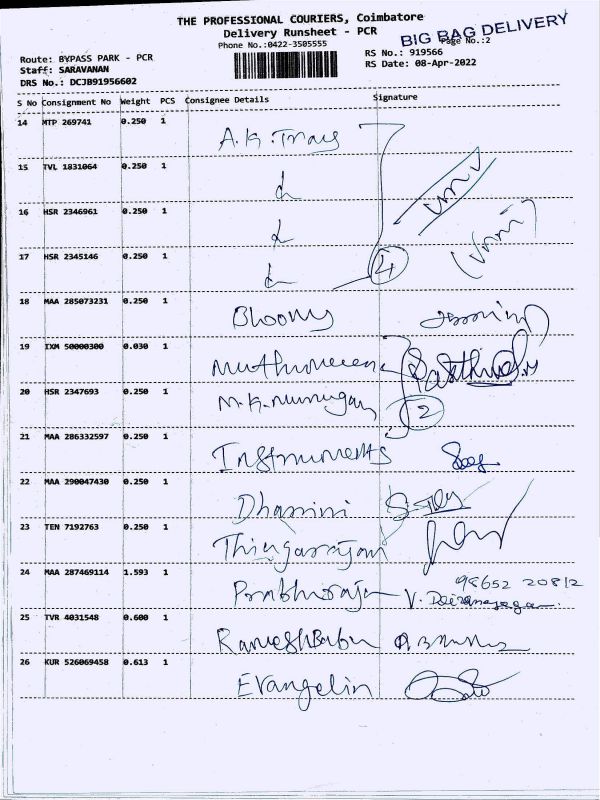 THE PROFESSIONAL COURIERS, Coimbatore
Delivery Runsheet - PCR
BIG BAG DELIVERY
Phone No.:0422-3505555
Page No.:2
Route: BYPASS PARK - PCR
RS No.: 919566
Staff: SARAVANAN
RS Date: 08-Apr-2022
DRS No.: DCJB91956602
S No Consignment No Weight PCS Consignee Details Signature
14 MTP 269741 0.250 1 A.K.
15 TVL 1831064 0.250 1
16 HSR 2346961 0.250 1
17 HSR 2345146 0.250 1 4
18 MAA 285073231 0.250 1 Bloomy
19 IXM 50000300 0.030 1
20 HSR 2347693 0.250 1 M.K.Murugan 2
21 MAA 286332597 0.250 1 Instruments
22 MAA 290047430 0.250 1 Dharini
23 TEN 7192763 0.250 1 Thiyagarajan
24 MAA 287469114 1.593 1 Prabhuraja 98652 20812
25 TVR 4031548 0.600 1 RameshBabu
26 KUR 526069458 0.613 1 Evangelin